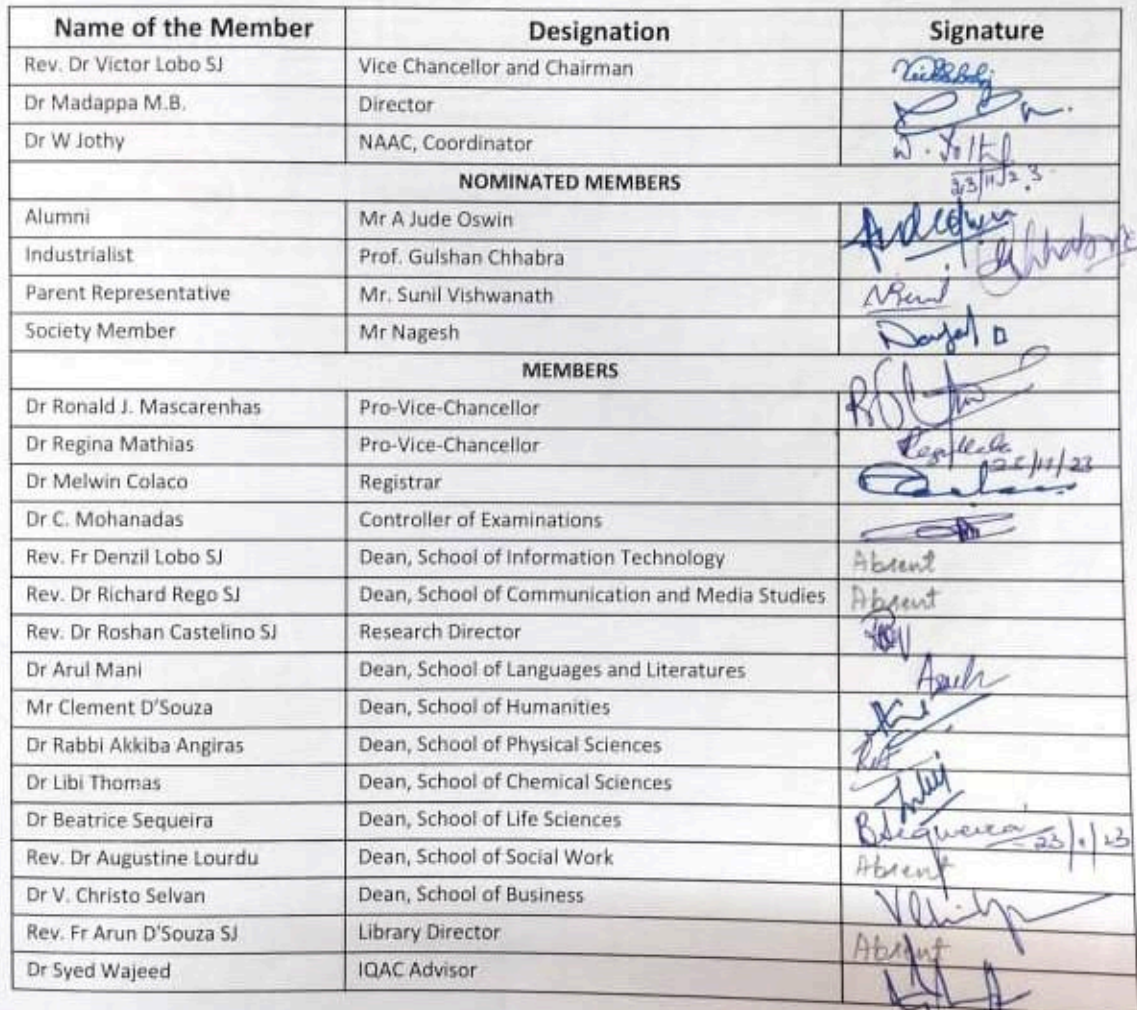 Name of the Member Designation Signature
Rev. Dr Victor Lobo SJ Vice Chancellor and Chairman
Dr Madappa M.B. Director
Dr W Jothy NAAC, Coordinator W. Jothy
23/11/23
NOMINATED MEMBERS
Alumni Mr A Jude Oswin
Industrialist Prof. Gulshan Chhabra Chhabra
Parent Representative Mr. Sunil Vishwanath
Society Member Mr Nagesh
MEMBERS
Dr Ronald J. Mascarenhas Pro-Vice-Chancellor
Dr Regina Mathias Pro-Vice-Chancellor
Dr Melwin Colaco Registrar
Dr C. Mohanadas Controller of Examinations
Rev. Fr Denzil Lobo SJ Dean, School of Information Technology Absent
Rev. Dr Richard Rego SJ Dean, School of Communication and Media Studies Absent
Rev. Dr Roshan Castelino SJ Research Director
Dr Arul Mani Dean, School of Languages and Literatures
Mr Clement D'Souza Dean, School of Humanities
Dr Rabbi Akkiba Angiras Dean, School of Physical Sciences
Dr Libi Thomas Dean, School of Chemical Sciences
Dr Beatrice Sequeira Dean, School of Life Sciences BSequeira
Rev. Dr Augustine Lourdu Dean, School of Social Work Absent
Dr V. Christo Selvan Dean, School of Business
Rev. Fr Arun D'Souza SJ Library Director Absent
Dr Syed Wajeed IQAC Advisor